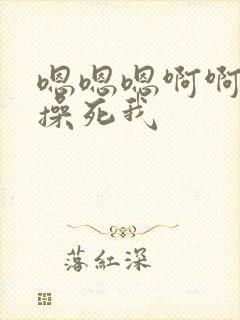 嗯嗯嗯啊啊
操死我
落紅深